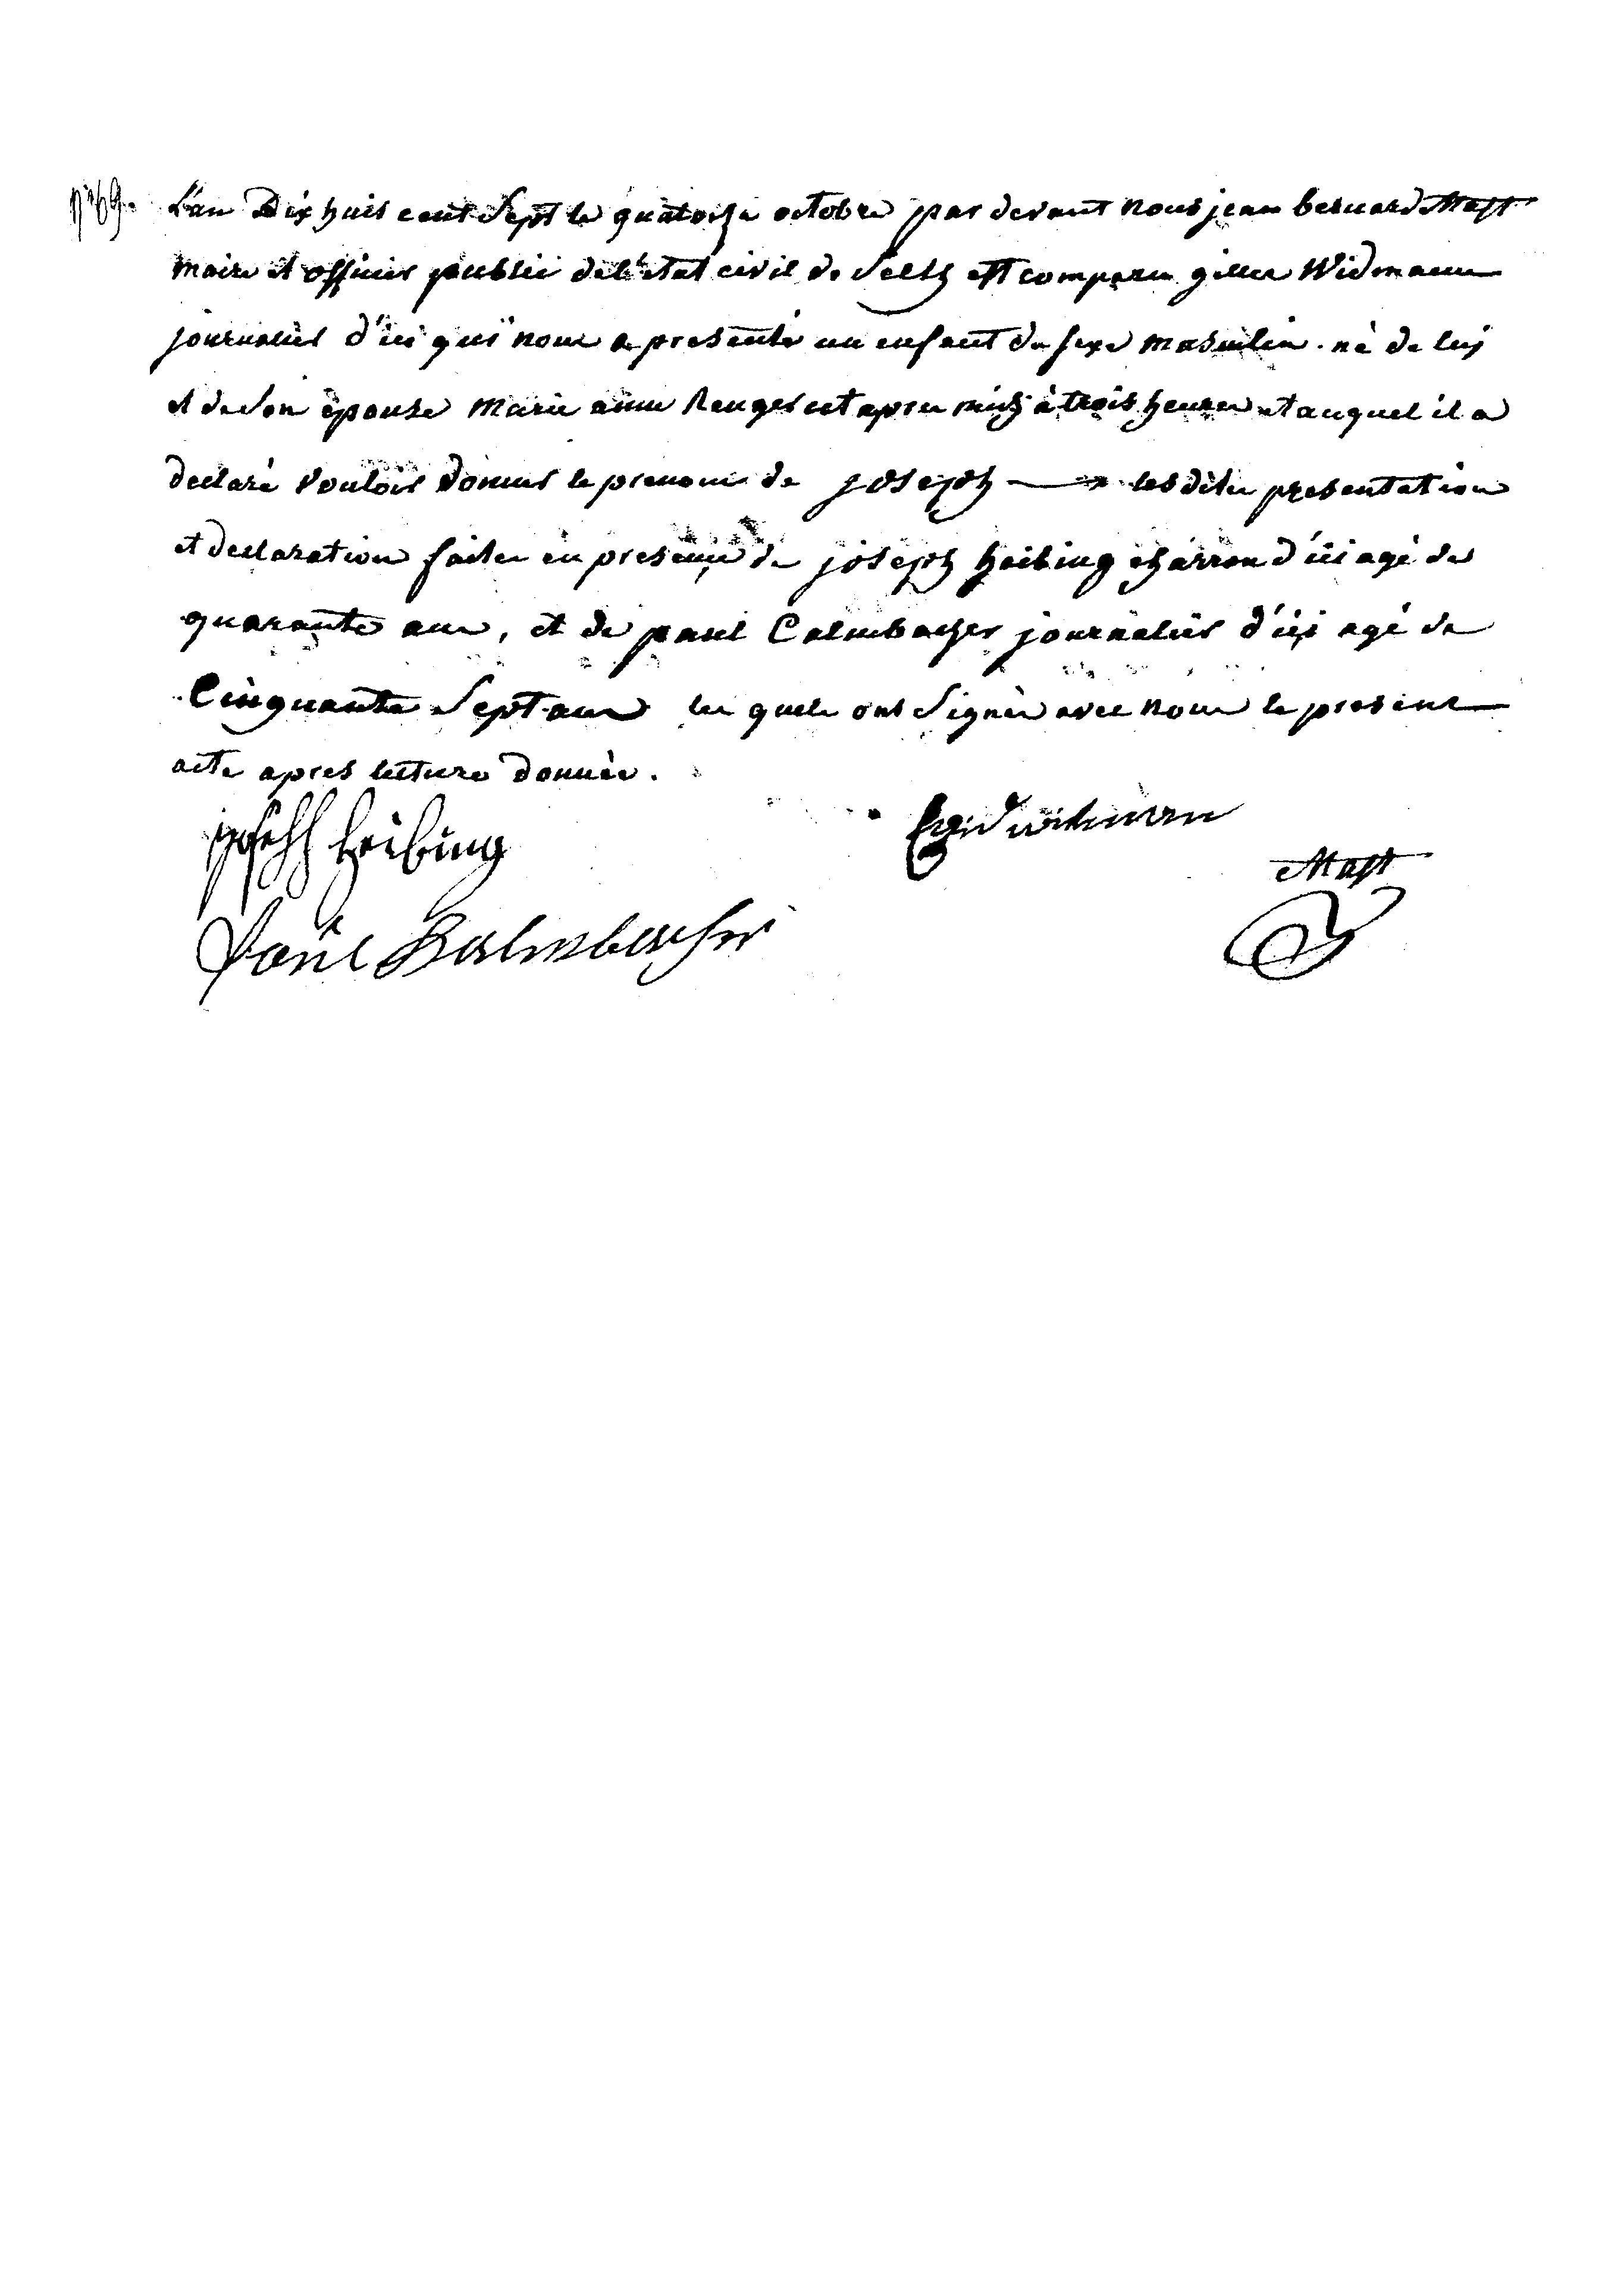 N° 69. L'an Dix huit cent Sept le quatorze octobre par devant nous jean bernard Mast
maire et officier public de l'etat civil de Seltz est comparu gilles Widmann
journalier d'ici qui nous a presenté un enfant du sexe masculin. né de luj
et de Son épouse marie anne Renger cet apres midj à trois heures et auquel il a
declaré vouloir donner le prenom de joseph — les dites presentation
et declaration faites en presence de joseph heibing charron d'ici agé de
quarante ans, et de paul Calmbacher journalier d'ici agé de
Cinquante Sept ans les quels ont Signés avec nous le present
acte apres lecture donnée.
joseph heibing
Mast
Paul Kalmbacher